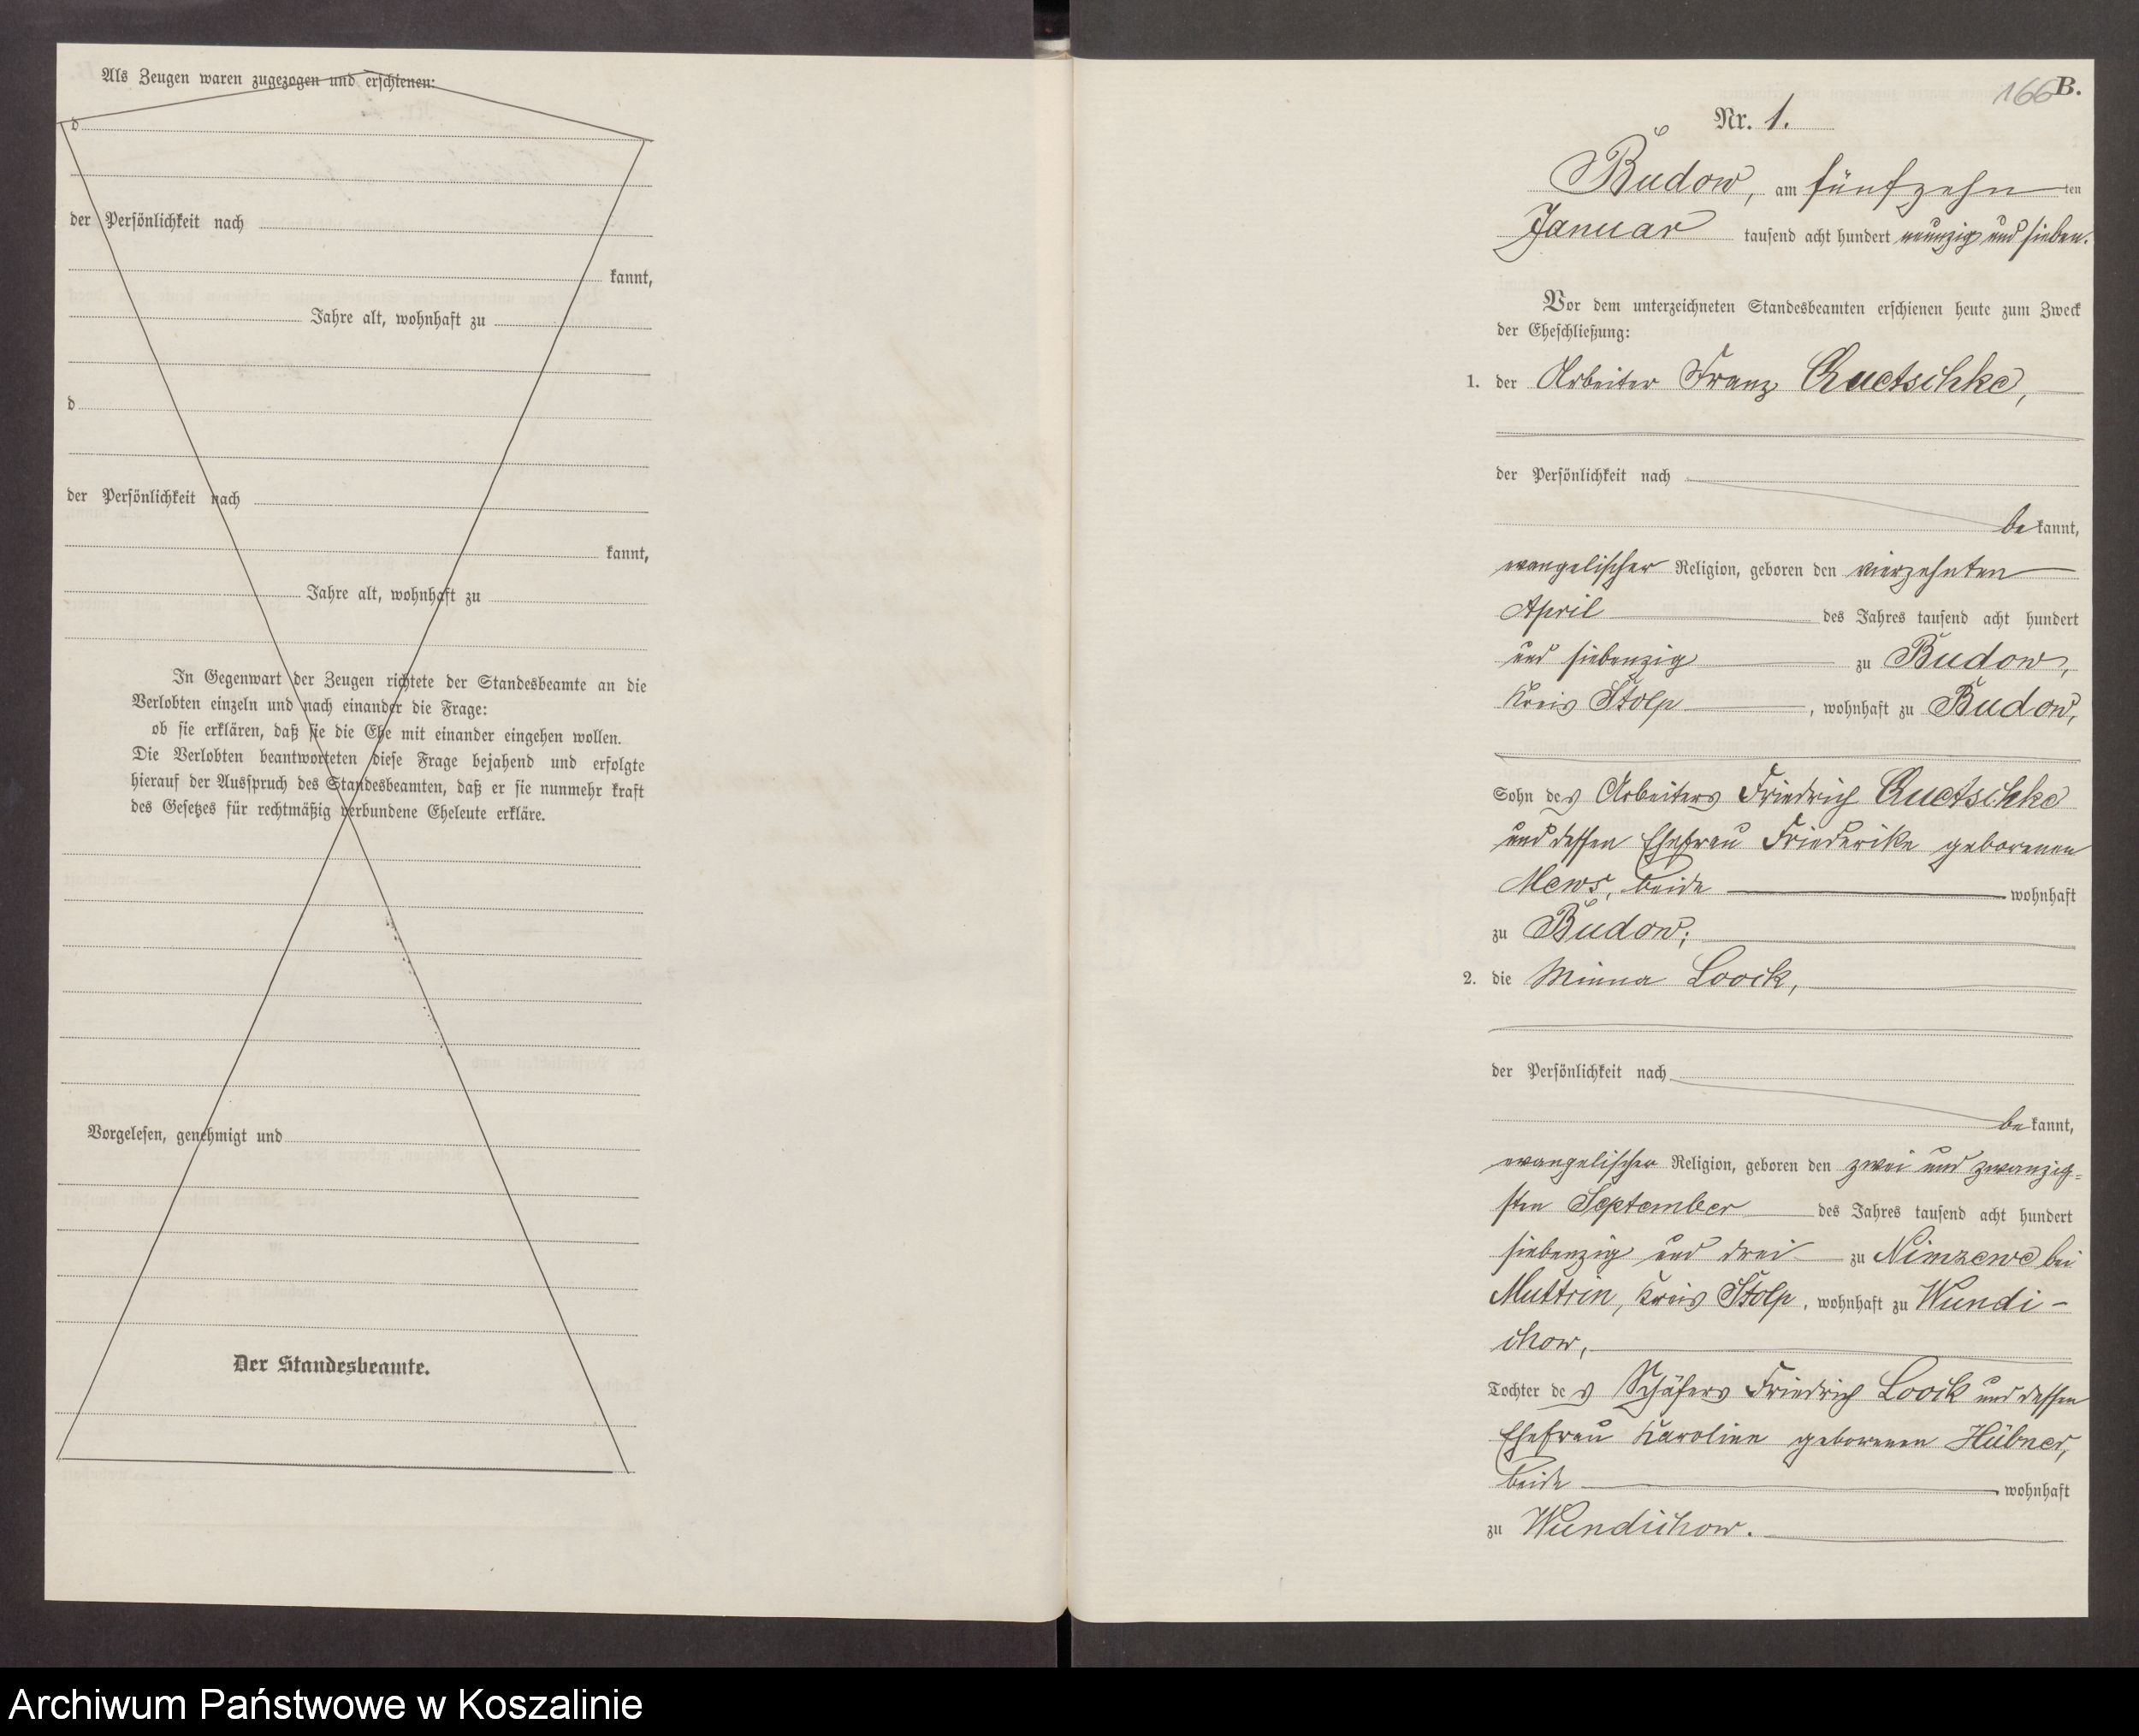 Als Zeugen waren zugezogen und erschienen:
d
der Persönlichkeit nach
kannt,
Jahre alt, wohnhaft zu
d
der Persönlichkeit nach
kannt,
Jahre alt, wohnhaft zu
In Gegenwart der Zeugen richtete der Standesbeamte an die
Verlobten einzeln und nach einander die Frage:
ob sie erklären, daß sie die Ehe mit einander eingehen wollen.
Die Verlobten beantworteten diese Frage bejahend und erfolgte
hierauf der Ausspruch des Standesbeamten, daß er sie nunmehr kraft
des Gesetzes für rechtmäßig verbundene Eheleute erkläre.
Vorgelesen, genehmigt und
Der Standesbeamte.
166 B.
Nr. 1.
Budow, am fünfzehn ten
Januar tausend acht hundert neunzig und sieben.
Vor dem unterzeichneten Standesbeamten erschienen heute zum Zweck
der Eheschließung:
1. der Arbeiter Franz Quetschke,
der Persönlichkeit nach
be kannt,
evangelischer Religion, geboren den vierzehnten
April des Jahres tausend acht hundert
und siebenzig zu Budow,
Kreis Stolp, wohnhaft zu Budow,
Sohn des Arbeiters Friedrich Quetschke
und dessen Ehefrau Friederike geborenen
Mews, beide wohnhaft
zu Budow;
2. die Minna Loock,
der Persönlichkeit nach
be kannt,
evangelischer Religion, geboren den zwei und zwanzig=
sten September des Jahres tausend acht hundert
siebenzig und drei zu Nimzewe bei
Muttrin, Kreis Stolp, wohnhaft zu Wundi-
chow,
Tochter des Schäfers Friedrich Loock und dessen
Ehefrau Karoline geborenen Hübner,
beide wohnhaft
zu Wundichow.
Archiwum Państwowe w Koszalinie